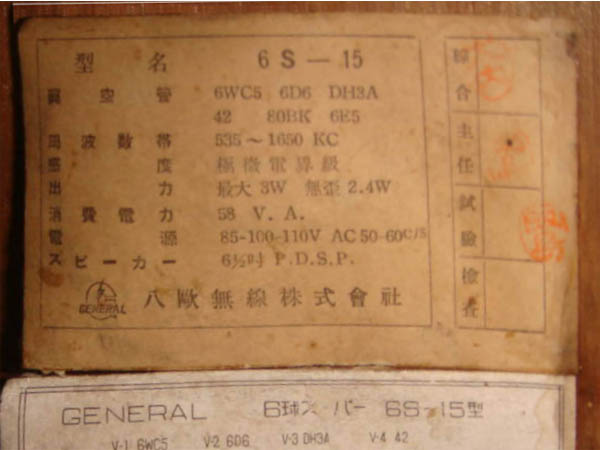 型名 6S-15
眞空管 6WC5 6D6 DH3A
42 80BK 6E5
周波数帯 535～1650 KC
感度 極微電界級
出力 最大 3W 無歪 2.4W
消費電力 58 V.A.
電源 85-100-110V AC 50-60C/S
スピーカー 6½吋 P.D.S.P.
GENERAL 八歐無線株式會社
綜合
主任
試驗
檢査
GENERAL 6球スーパー 6S-15型
V-1 6WC5 V-2 6D6 V-3 DH3A V-4 42